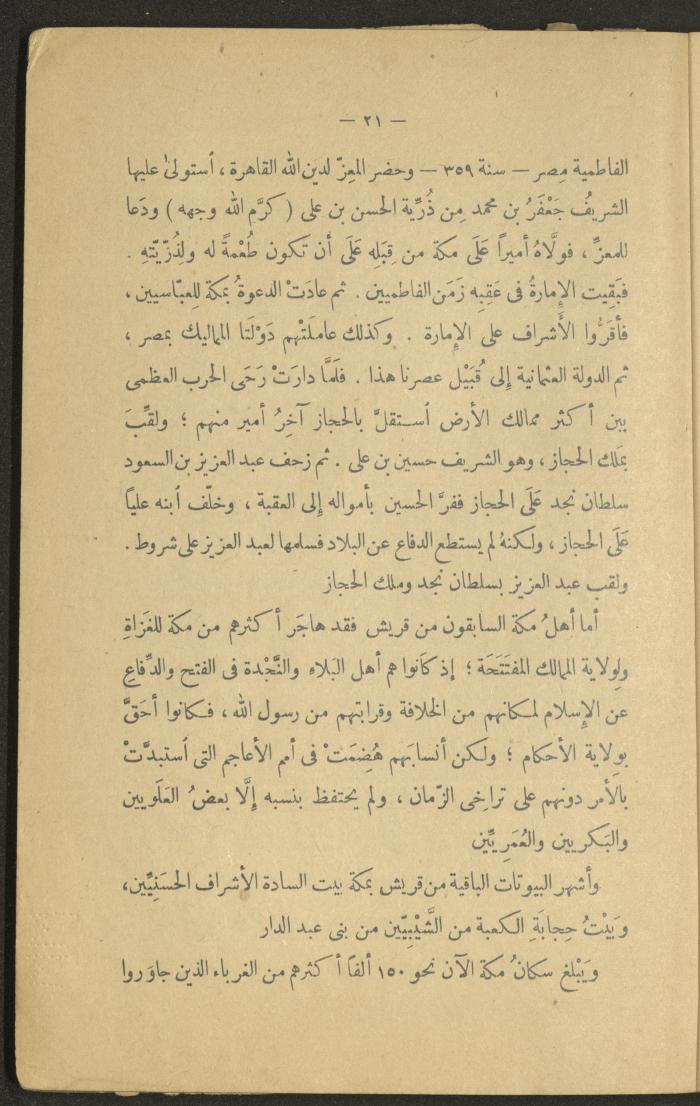 — ٢١ —
الفاطمية مِصر — سنة ٣٥٩ — وحضر المعِزّ لدين الله القاهرة ، أستولىٰ عليها
الشريفُ جَعْفَرُ بن محمد مِن ذُرِّية الحسن بن على ( كرَّم الله وجهه ) ودَعا
للمعزِّ ، فولَّاهُ أميراً عَلَى مكة من قِبَلِه عَلَى أن تكون طُعْمةً له ولذُرّيّتهِ .
فبَقِيت الإِمارةُ فى عَقِبِه زَمَن الفاطميين . ثم عادَتْ الدعوةُ بمكة للِعبّاسيين ،
فأقَرُّوا الأَشراف على الإِمارة . وكذلك عاملَتْهم دَوْلَتا المماليك بمصر ،
ثم الدولة العثمانية إِلى قُبَيْل عصرنا هذا . فلَمَّا دارَتْ رَحَى الحرب العظمى
بين أكثر ممالك الأرض أستقلَّ بالحجاز آخِرُ أمير منهم ؛ ولقِّبَ
بمَلك الحجاز ، وهو الشريف حسين بن على . ثم زحف عبد العزيز بن السعود
سلطان نجد عَلَى الحجاز ففرَّ الحسين بأمواله إِلى العقبة ، وخلّف أبنه علياً
عَلَى الحجاز ، ولكنهُ لم يستطع الدفاع عن البلاد فسلمها لعبد العزيز على شروط .
ولقب عبد العزيز بسلطان نجد وملك الحجاز
أما أهلُ مكة السابقون من قريش فقد هاجَر أكثرهم من مكة للغَزاةِ
ولِولاية الممالك المفتَتَحَة ؛ إذ كَانوا هم أهل البَلاء والنَّجْدة فى الفتح والدِّفاعِ
عن الإِسلام لمكانهم من الخلافة وقرابتهم من رسول الله ، فكانوا أحَقَّ
بوِلاية الأحكام ؛ ولكن أنسابَهم هُضِمَتْ فى أمم الأعاجم التى أستبدَّتْ
بالأمر دونهم على تراخِى الزّمان ، ولم يحتفظ بنسبه إِلَّا بعضُ العَلَويين
والبَكريين والعُمَرِيّين
وأشهر البيوتات الباقية من قريش بمكة بيت السادة الأشراف الحسَنيِّين،
وَبَيْتُ حِجابَةِ الكعبة من الشَّيْبِيّين من بنى عبد الدار
ويَبْلغ سكانُ مكة الآن نحو ١٥٠ ألفاً أكثرهم من الغرباء الذين جاوَروا